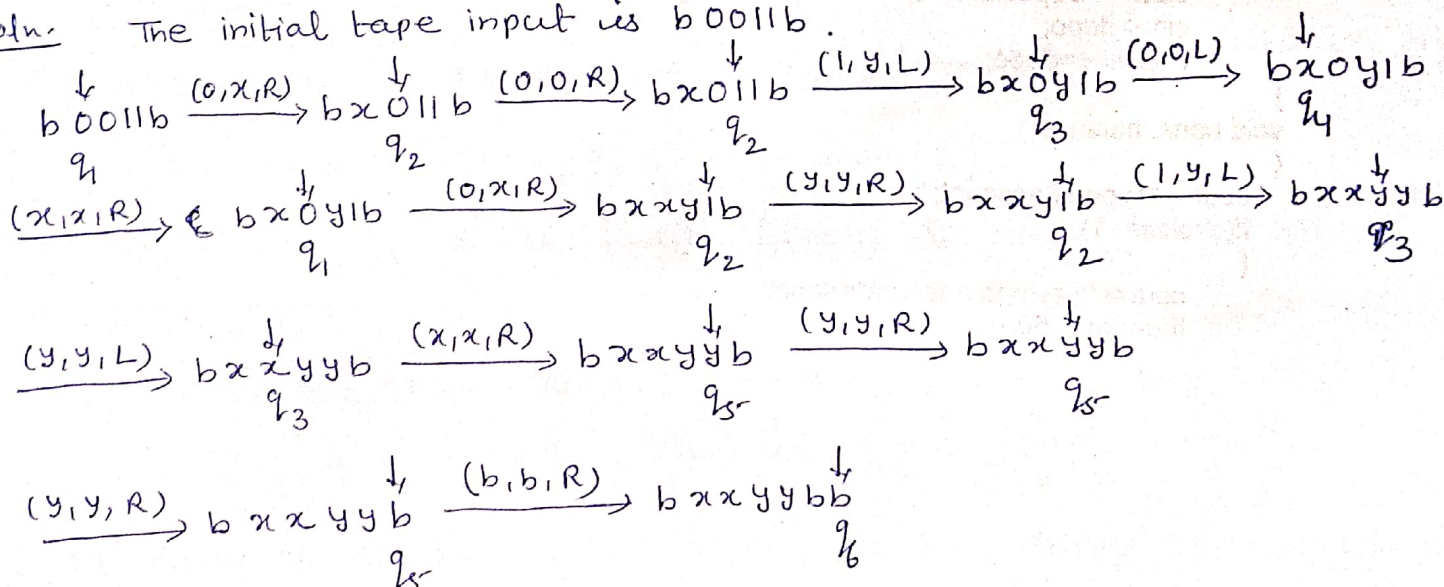 oln. The initial tape input is b0011b.
↓ ↓ ↓ ↓ ↓
b0011b (0,x,R)→ bx011b (0,0,R)→ bx011b (1,y,L)→ bx0y1b (0,0,L)→ bx0y1b
q1 q2 q2 q3 q4
↓ ↓ ↓ ↓
(x,x,R)→ bx0y1b (0,x,R)→ bxxy1b (y,y,R)→ bxxy1b (1,y,L)→ bxxyyb
q1 q2 q2 q3
↓ ↓ ↓
(y,y,L)→ bxxyyb (x,x,R)→ bxxyyb (y,y,R)→ bxxyyb
q3 q5 q5
↓ ↓
(y,y,R)→ bxxyyb (b,b,R)→ bxxyybb
q5 q6